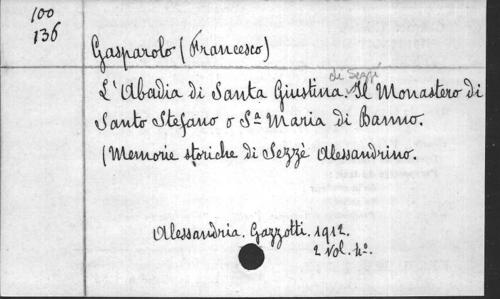 100
136
Gasparolo (Francesco)
de Sezzé
L'Abadia di Santa Giustina. Il Monastero di
Santo Stefano o Sª Maria di Banno.
(Memorie storiche di Sezzè Alessandrino.
Alessandria. Gazzotti. 1912.
2 vol. 4º.